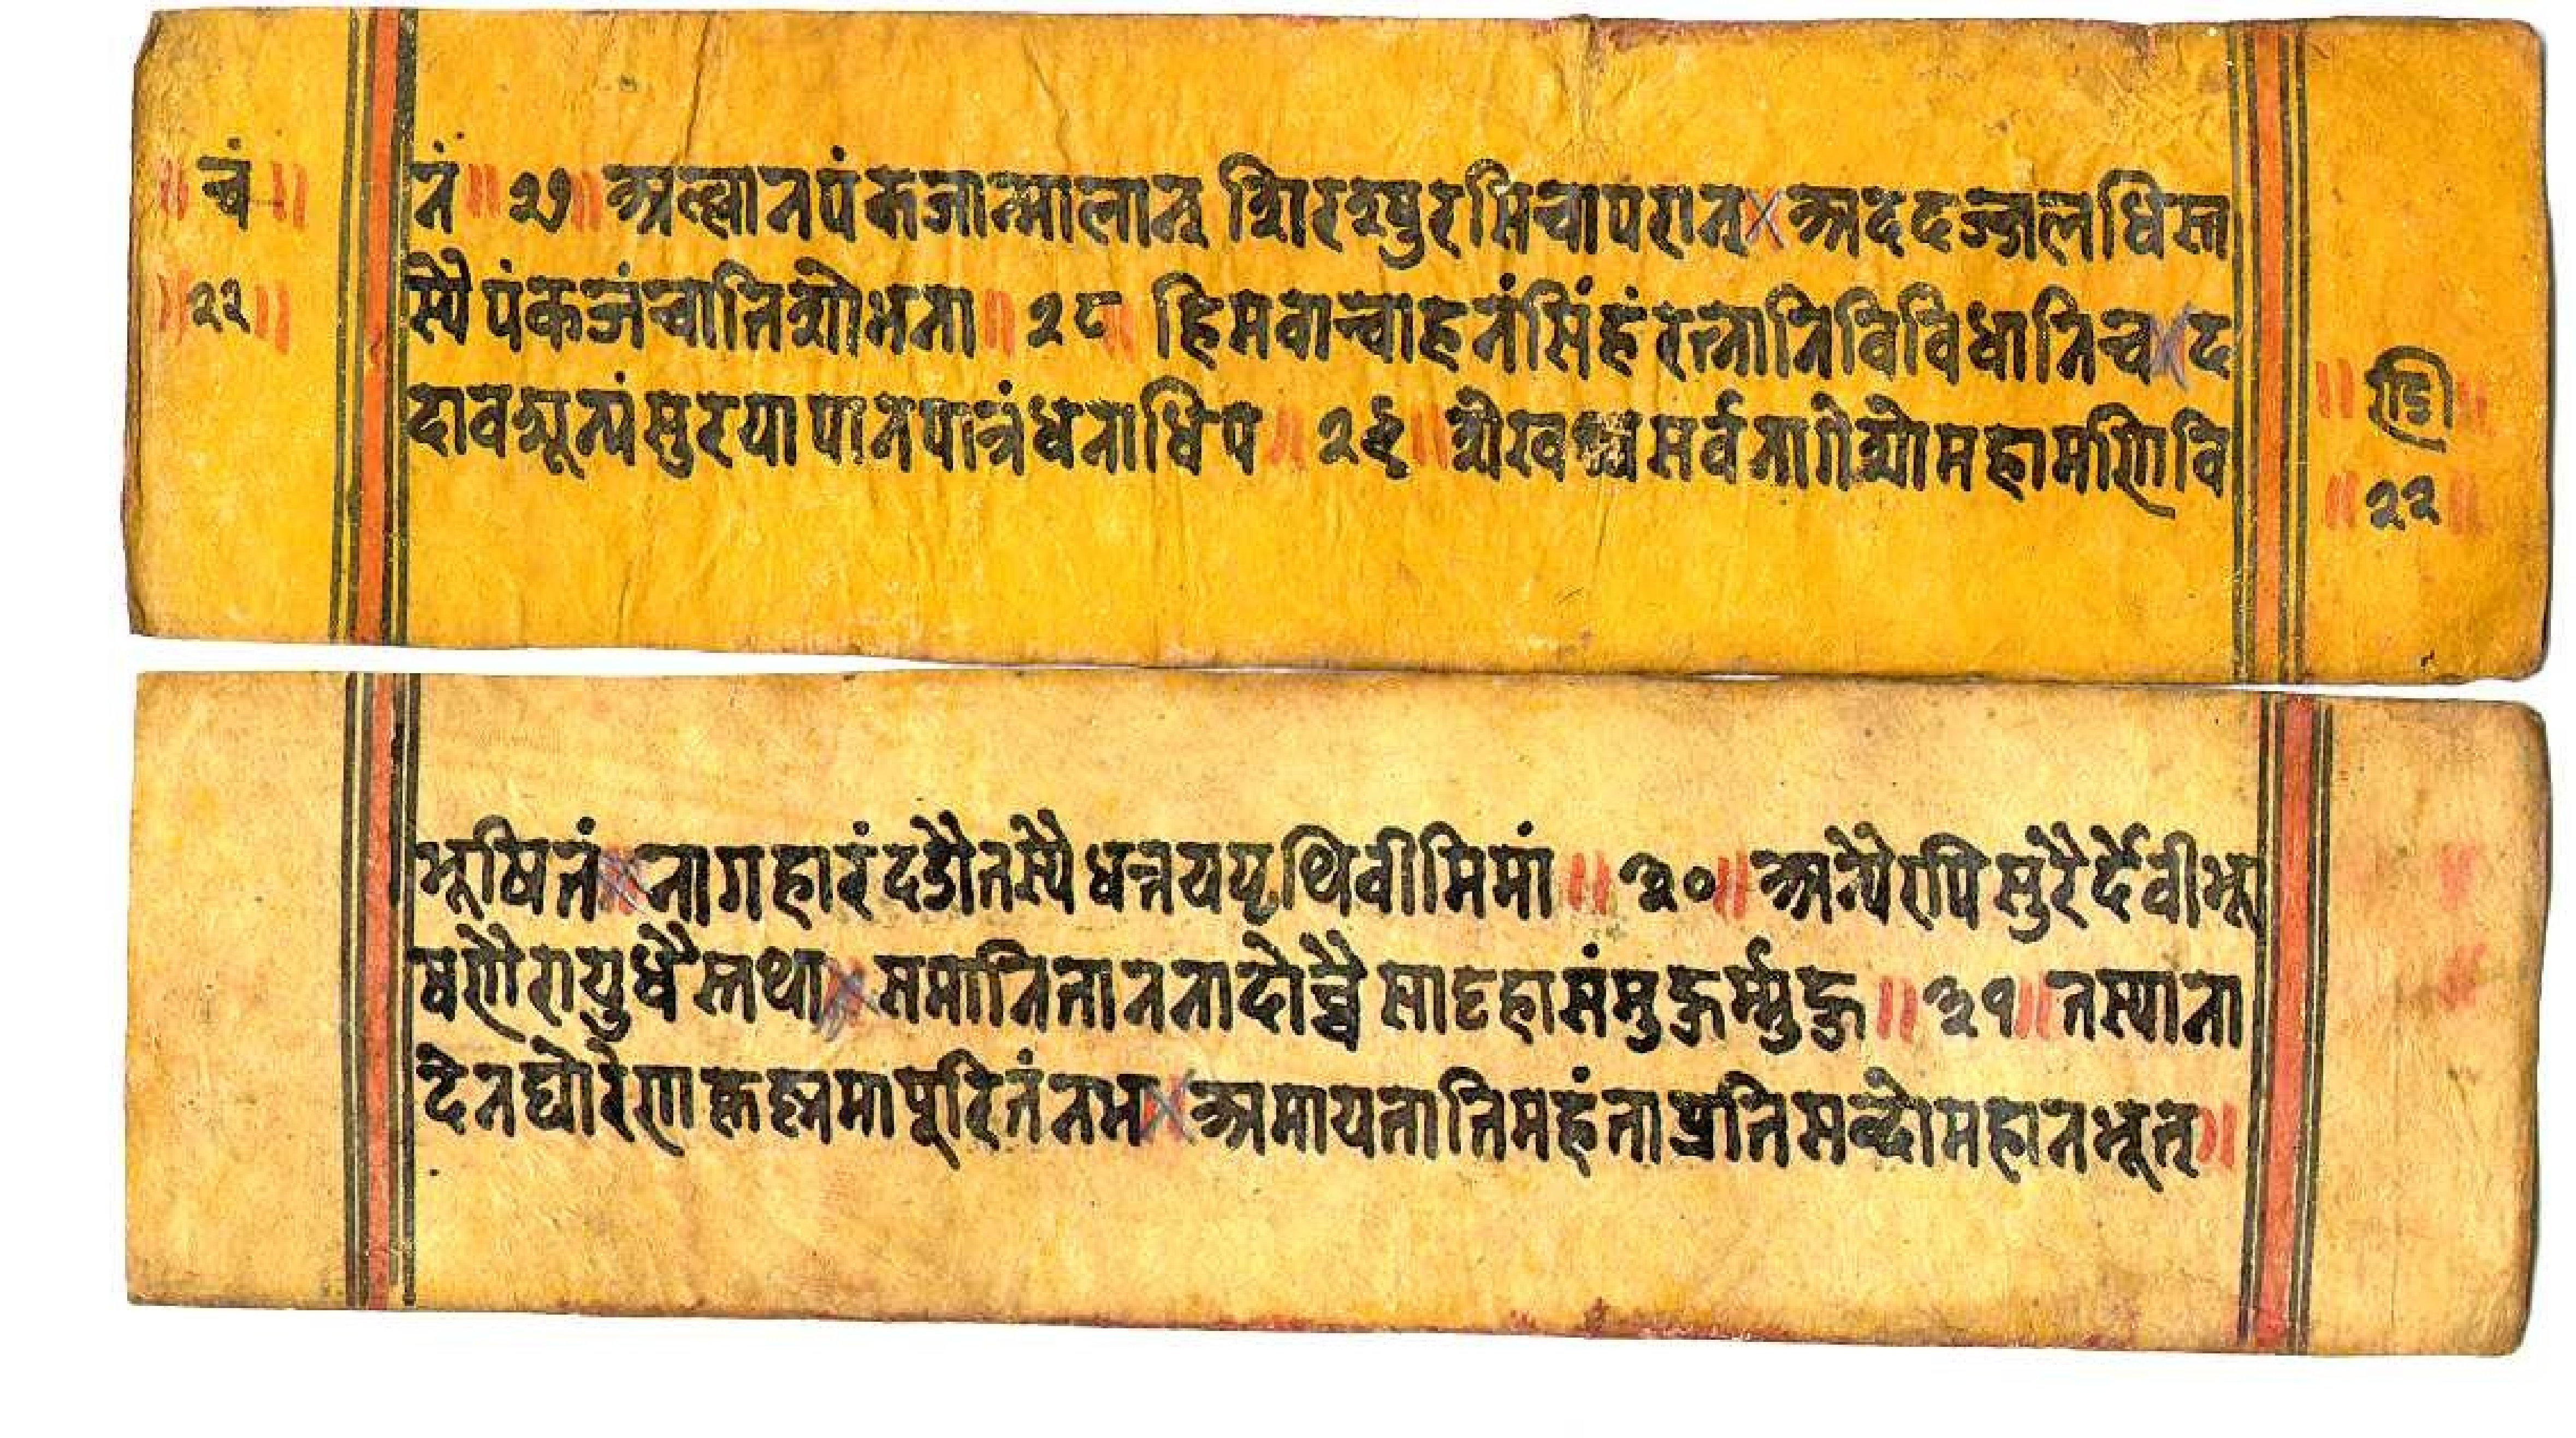 चं
२२
तं ॥ २७ ॥ अम्लानपंकजान्मालान् शिरस्युरसिचापरान् अददज्जलधिस्त
स्यै पंकजंचातिशोभना ॥ २८ ॥ हिमवान्वाहनंसिंहंरत्नानिविविधानिच द
दावशून्यंसुरयापानपात्रंधनाधिप ॥ २९ ॥ सर्वनागेशोमहामणिवि
डि
२२
भूषितं नागहारंददौतस्यैधत्तेयपृथिवीमिमां ॥ ३० ॥ अन्यैरपिसुरैर्देवीभू
षणैरायुधैस्तथा समानिताननादोच्चैसाट्टहासंमुहुर्म्मुहु ॥ ३१ ॥ तस्याना
देनघोरेणकृत्स्नमापूरितंनभ अमायतातिमहंताप्रतिसब्दोमहानभूत् ॥